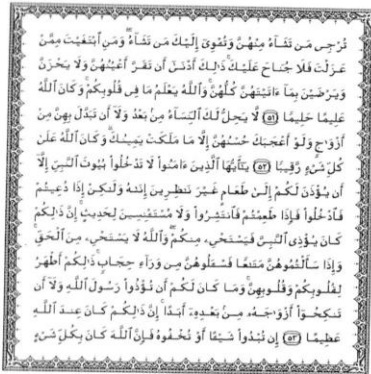 تُرْجِى مَن تَشَآءُ مِنْهُنَّ وَتُـْٔوِىٓ إِلَيْكَ مَن تَشَآءُ وَمَنِ ٱبْتَغَيْتَ مِمَّنْ
عَزَلْتَ فَلَا جُنَاحَ عَلَيْكَ ذَٰلِكَ أَدْنَىٰٓ أَن تَقَرَّ أَعْيُنُهُنَّ وَلَا يَحْزَنَّ
وَيَرْضَيْنَ بِمَآ ءَاتَيْتَهُنَّ كُلُّهُنَّ وَٱللَّهُ يَعْلَمُ مَا فِى قُلُوبِكُمْ وَكَانَ ٱللَّهُ
عَلِيمًا حَلِيمًا ٥١ لَّا يَحِلُّ لَكَ ٱلنِّسَآءُ مِنۢ بَعْدُ وَلَآ أَن تَبَدَّلَ بِهِنَّ مِنْ
أَزْوَٰجٍ وَلَوْ أَعْجَبَكَ حُسْنُهُنَّ إِلَّا مَا مَلَكَتْ يَمِينُكَ وَكَانَ ٱللَّهُ عَلَىٰ
كُلِّ شَىْءٍ رَّقِيبًا ٥٢ يَٰٓأَيُّهَا ٱلَّذِينَ ءَامَنُوا۟ لَا تَدْخُلُوا۟ بُيُوتَ ٱلنَّبِىِّ إِلَّآ
أَن يُؤْذَنَ لَكُمْ إِلَىٰ طَعَامٍ غَيْرَ نَٰظِرِينَ إِنَىٰهُ وَلَٰكِنْ إِذَا دُعِيتُمْ
فَٱدْخُلُوا۟ فَإِذَا طَعِمْتُمْ فَٱنتَشِرُوا۟ وَلَا مُسْتَـْٔنِسِينَ لِحَدِيثٍ إِنَّ ذَٰلِكُمْ
كَانَ يُؤْذِى ٱلنَّبِىَّ فَيَسْتَحْىِۦ مِنكُمْ وَٱللَّهُ لَا يَسْتَحْىِۦ مِنَ ٱلْحَقِّ
وَإِذَا سَأَلْتُمُوهُنَّ مَتَٰعًا فَسْـَٔلُوهُنَّ مِن وَرَآءِ حِجَابٍ ذَٰلِكُمْ أَطْهَرُ
لِقُلُوبِكُمْ وَقُلُوبِهِنَّ وَمَا كَانَ لَكُمْ أَن تُؤْذُوا۟ رَسُولَ ٱللَّهِ وَلَآ أَن
تَنكِحُوٓا۟ أَزْوَٰجَهُۥ مِنۢ بَعْدِهِۦٓ أَبَدًا إِنَّ ذَٰلِكُمْ كَانَ عِندَ ٱللَّهِ
عَظِيمًا ٥٣ إِن تُبْدُوا۟ شَيْـًٔا أَوْ تُخْفُوهُ فَإِنَّ ٱللَّهَ كَانَ بِكُلِّ شَىْءٍ